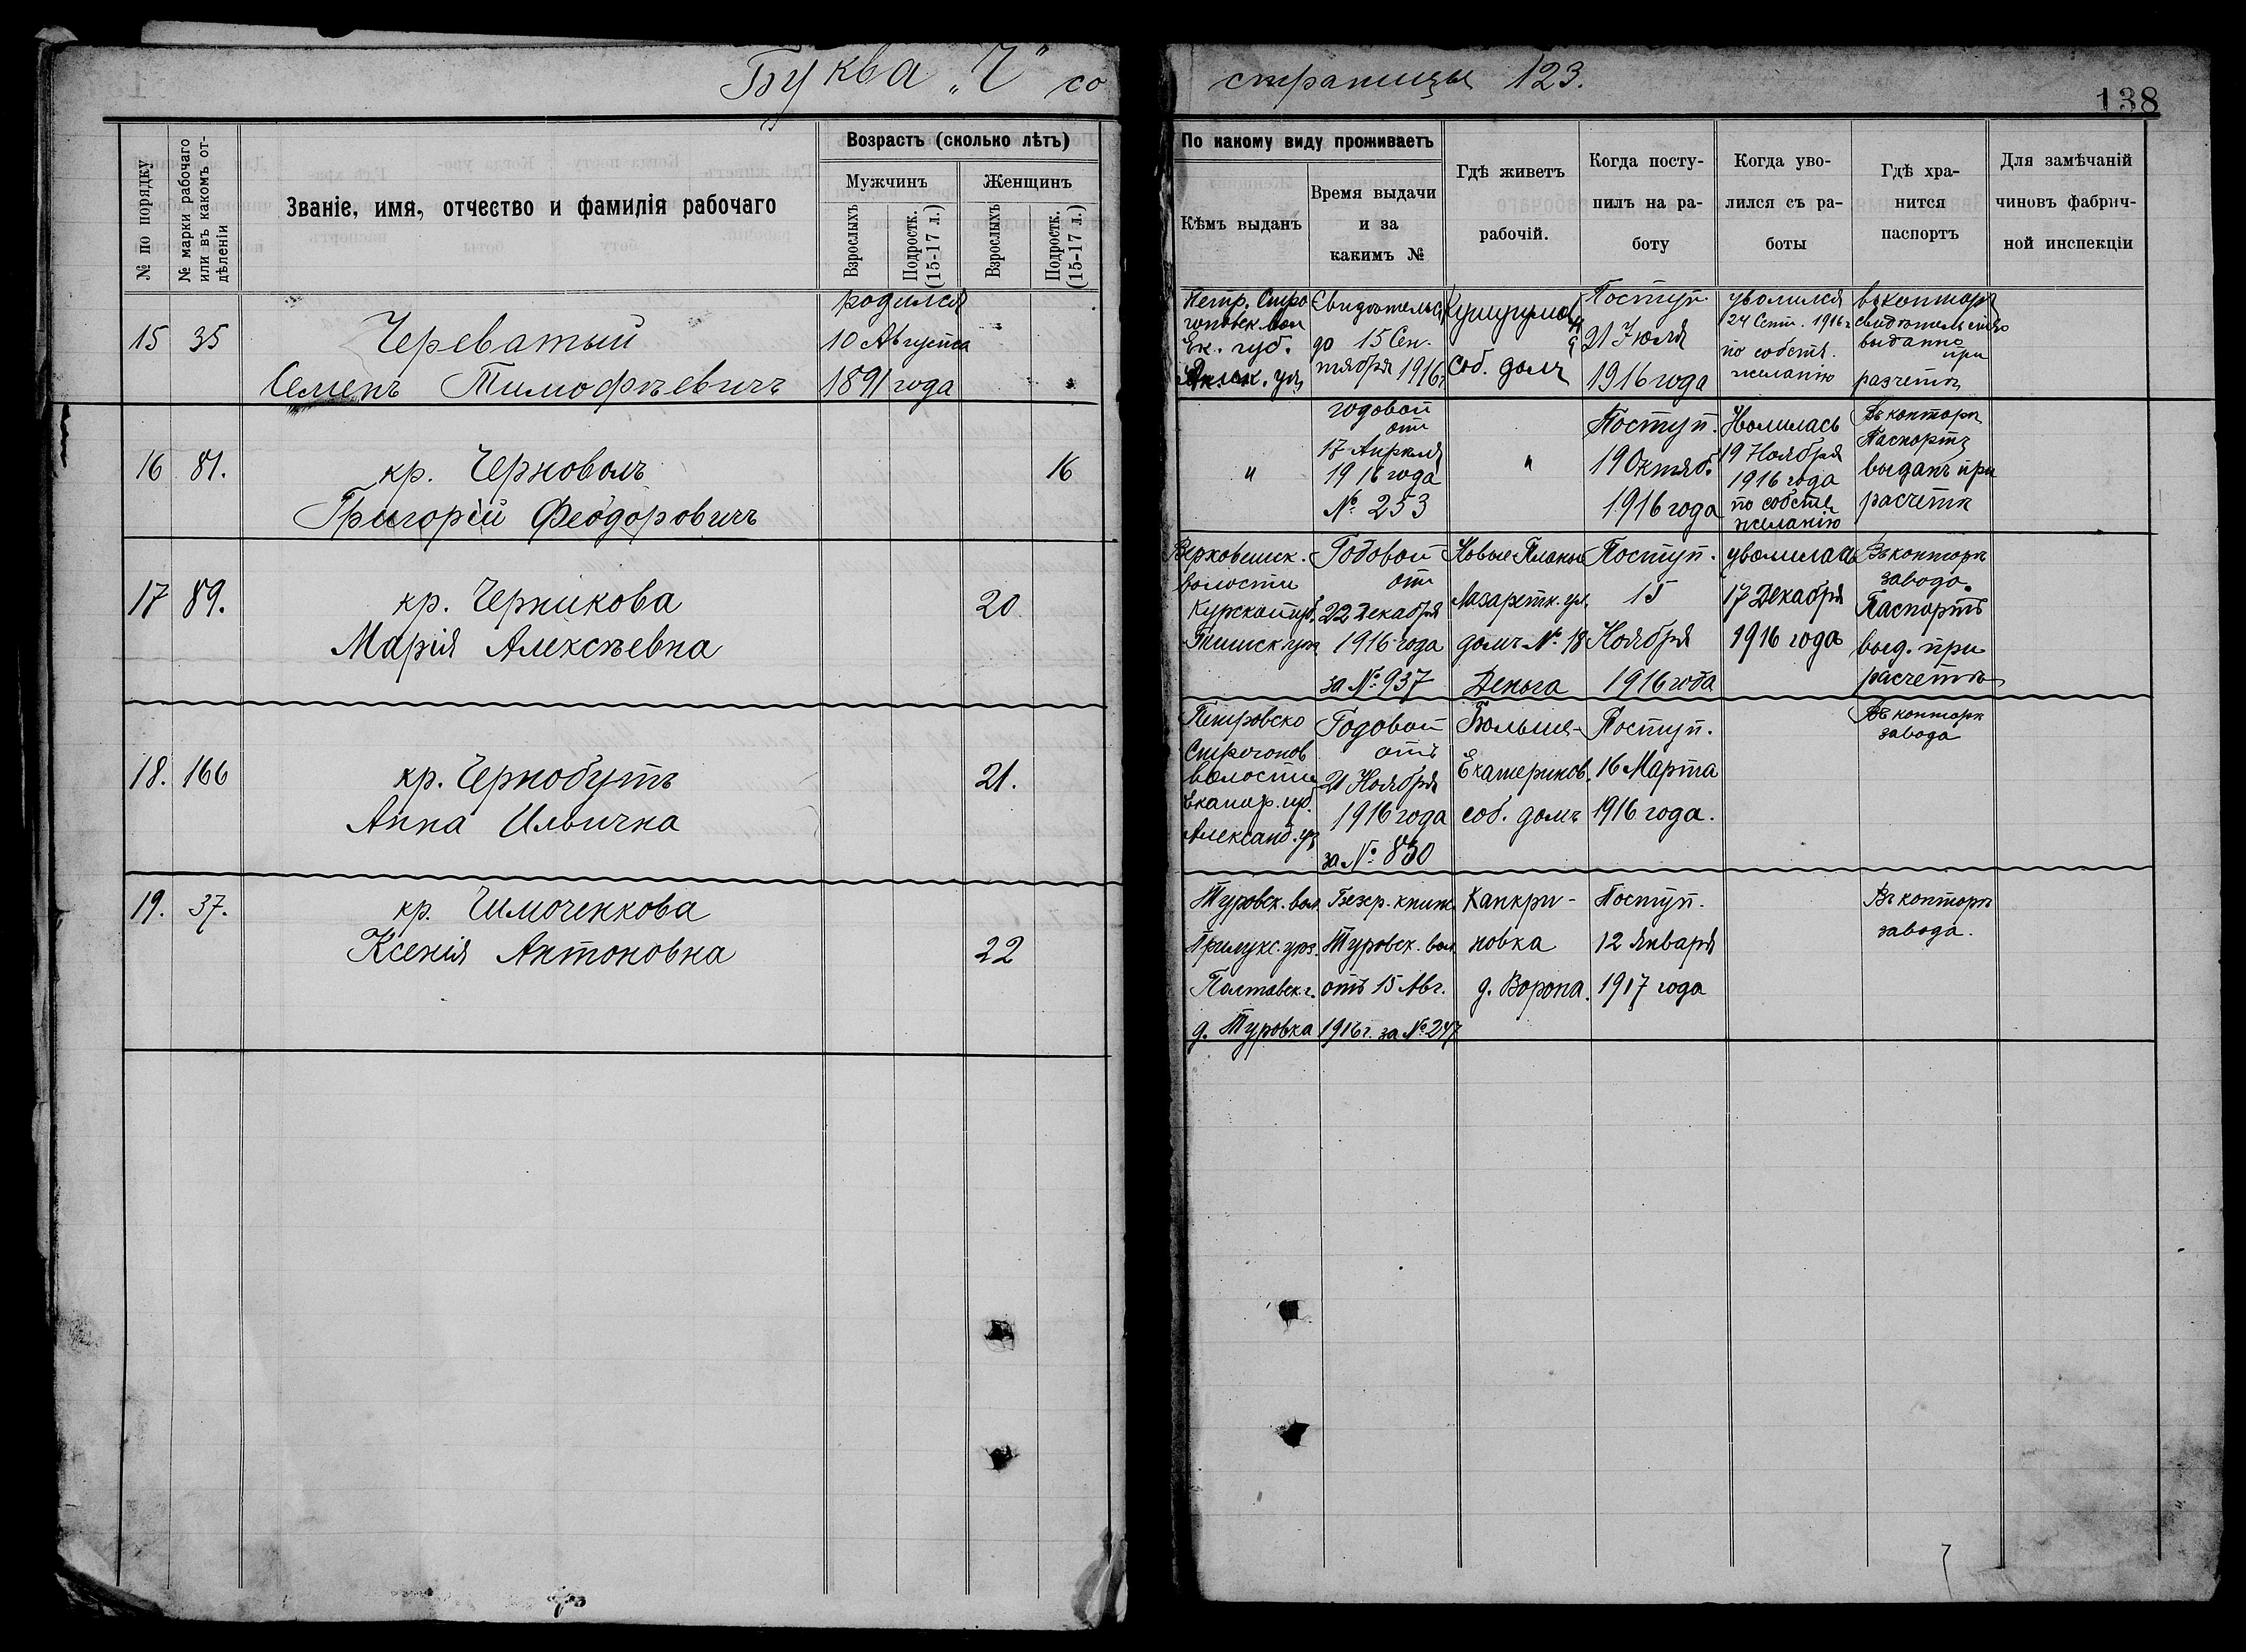 Буква „Ч" со страницы 123.
138
№ по порядку
№ марки рабочаго или въ какомъ от-дѣленіи
Званіе, имя, отчество и фамилія рабочаго
Возрастъ (сколько лѣтъ)
Мужчинъ
Женщинъ
Взрослыхъ
Подростк. (15-17 л.)
Взрослыхъ
Подростк. (15-17 л.)
По какому виду проживаетъ
Кѣмъ выданъ
Время выдачи
и за
какимъ №
Гдѣ живетъ
рабочій.
Когда посту-
пилъ на ра-
боту
Когда уво-
лился съ ра-
боты
Гдѣ хра-
нится
паспортъ
Для замѣчаній
чиновъ фабрич-
ной инспекціи
15 35
Череватый
Семенъ Тимофѣевичъ
родился
10 Августа
1891 года
Петр. Стро
гоновск. вол
Ек. губ.
до 15 Сен-
тября 1916
соб. домъ
Поступ.
21 Июля
1916 года
уволился
24 Сент. 1916 г
по собств.
желанію
въ конторѣ
свидѣтельство
выдано
при
разчетѣ
16 81.
кр. Черноволъ
Григорій Феодоровичъ
16
"
годовой
отъ
17 Апрѣля
1916 года
№ 253
"
Поступ.
19 Октяб.
1916 года
19 Ноября
1916 года
по собств
желанію
Въ конторѣ
Паспортъ
выданъ при
расчетѣ
17 89.
кр. Черникова
Марія Алексѣевна
20
волости
Курской губ.
Годовой
отъ
22 Декабря
1916 года
за № 937
Новые Планы
Лазаретн. ул.
домъ № 18
Деньга
Поступ.
15
Ноября
1916 года
уволилась
17 Декабря
1916 года
Въ конторѣ
завода.
Паспортъ
выд. при
расчетѣ
18. 166
кр. Чернобутъ
Анна Ильична
21.
Петровско
Строгонов
волости
Екатер. губ.
Александ. уѣз
Годовой
отъ
21 Ноября
1916 года
за № 830
Больше-
Екатеринов.
соб. домъ
Поступ.
16 Марта
1916 года.
Въ конторѣ
завода
19. 37.
кр. Чимоченкова
Ксенія Антоновна
22
Туровск. вол.
Прилукс. уѣз.
Полтавск. г.
д. Туровка
Безср. книж.
Туровск. вол.
отъ 15 Авг.
1916 г. за № 247
Канкри-
новка
д. Ворона.
Поступ.
12 Января
1917 года
Въ конторѣ
завода.